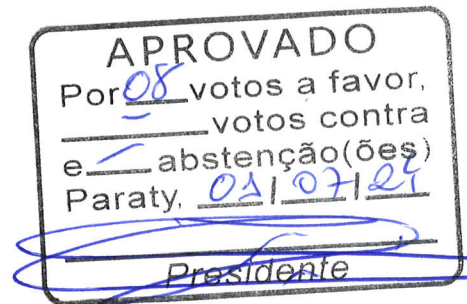 APROVADO
Por 08 votos a favor,
- votos contra
e - abstenção(ões)
Paraty, 01/07/24
Presidente